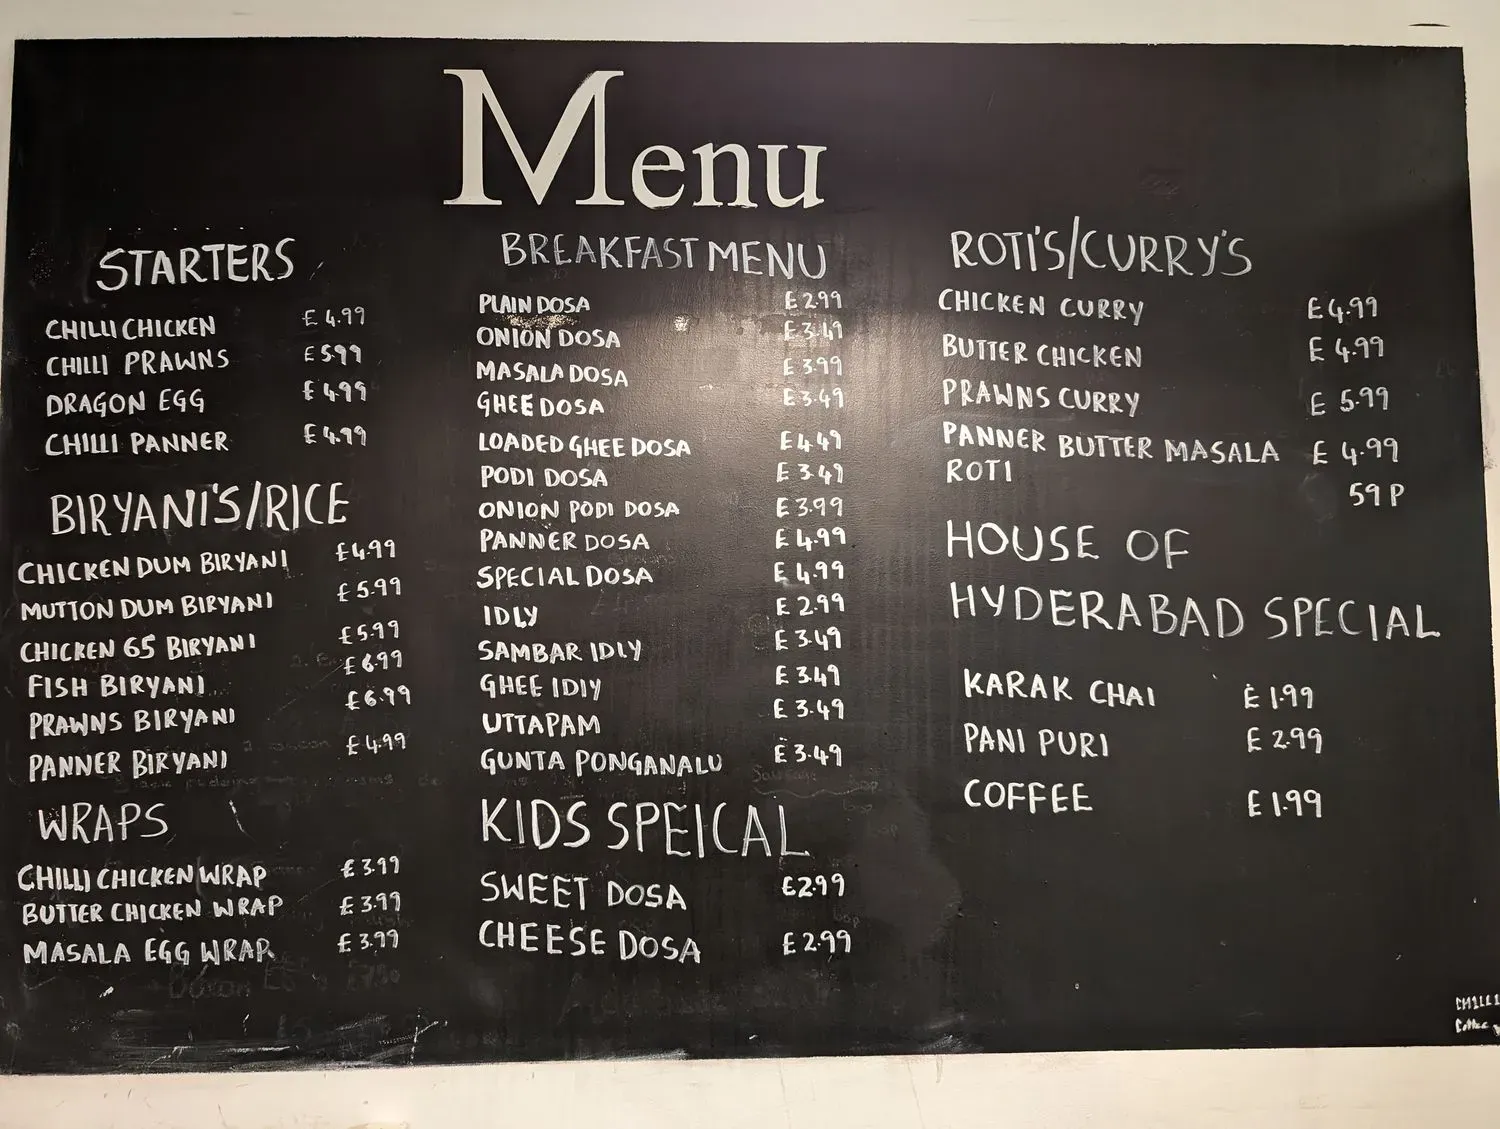 Menu
STARTERS
CHILLI CHICKEN £4.99
CHILLI PRAWNS £5.99
DRAGON EGG £4.99
CHILLI PANNER £4.99
BIRYANI'S/RICE
CHICKEN DUM BIRYANI £4.99
MUTTON DUM BIRYANI £5.99
CHICKEN 65 BIRYANI £5.99
FISH BIRYANI £6.99
PRAWNS BIRYANI £6.99
PANNER BIRYANI £4.99
WRAPS
CHILLI CHICKEN WRAP £3.99
BUTTER CHICKEN WRAP £3.99
MASALA EGG WRAP £3.99
BREAKFAST MENU
PLAIN DOSA £2.99
ONION DOSA £3.49
MASALA DOSA £3.99
GHEE DOSA £3.49
LOADED GHEE DOSA £4.49
PODI DOSA £3.49
ONION PODI DOSA £3.99
PANNER DOSA £4.99
SPECIAL DOSA £4.99
IDLY £2.99
SAMBAR IDLY £3.49
GHEE IDLY £3.49
UTTAPAM £3.49
GUNTA PONGANALU £3.49
KIDS SPEICAL
SWEET DOSA £2.99
CHEESE DOSA £2.99
ROTI'S/CURRY'S
CHICKEN CURRY £4.99
BUTTER CHICKEN £4.99
PRAWNS CURRY £5.99
PANNER BUTTER MASALA £4.99
ROTI 59P
HOUSE OF
HYDERABAD SPECIAL
KARAK CHAI £1.99
PANI PURI £2.99
COFFEE £1.99
Coffee